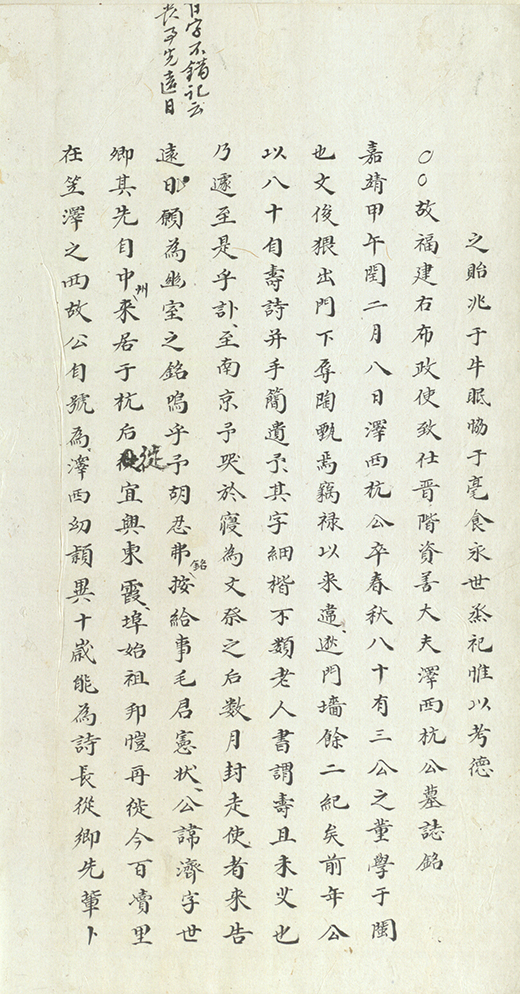 之貽兆于牛眠協于亳食永世烝祀惟以考德
○○故福建右布政使致仕晋階資善大夫澤西杭公墓誌銘
嘉靖甲午閏二月八日澤西杭公卒春秋八十有三公之董學于閩
也文俊猥出門下辱陶甄焉竊禄以来違逖門墻餘二紀矣前年公
以八十自壽詩并手簡遺予其字細楷不類老人書謂壽且未艾也
乃遽至是乎訃至南京予哭於寢為文祭之后数月封走使者来告
遠日願為幽室之銘嗚乎予胡忍弗銘按給事毛君憲状公諱濟字世
卿其先自中州来居于杭后徙宜興東霞埠始祖邦愷再徙今百瀆里
在笠澤之西故公自號為澤西幼穎異十歲能為詩長從鄉先輩卜
日字不錯記云
喪事先遠日